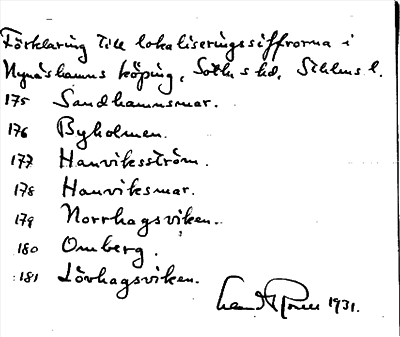 Förklaring till lokaliseringssiffrorna i
Nynäshamns köping, Sotlms hd, Sthlms l.
175 Sandhamnsmar.
176 Byholmen.
177 Hamviksström.
178 Hamviksmar.
179 Norrhagsviken.
180 Omberg.
181 Lövhagsviken.
1931.